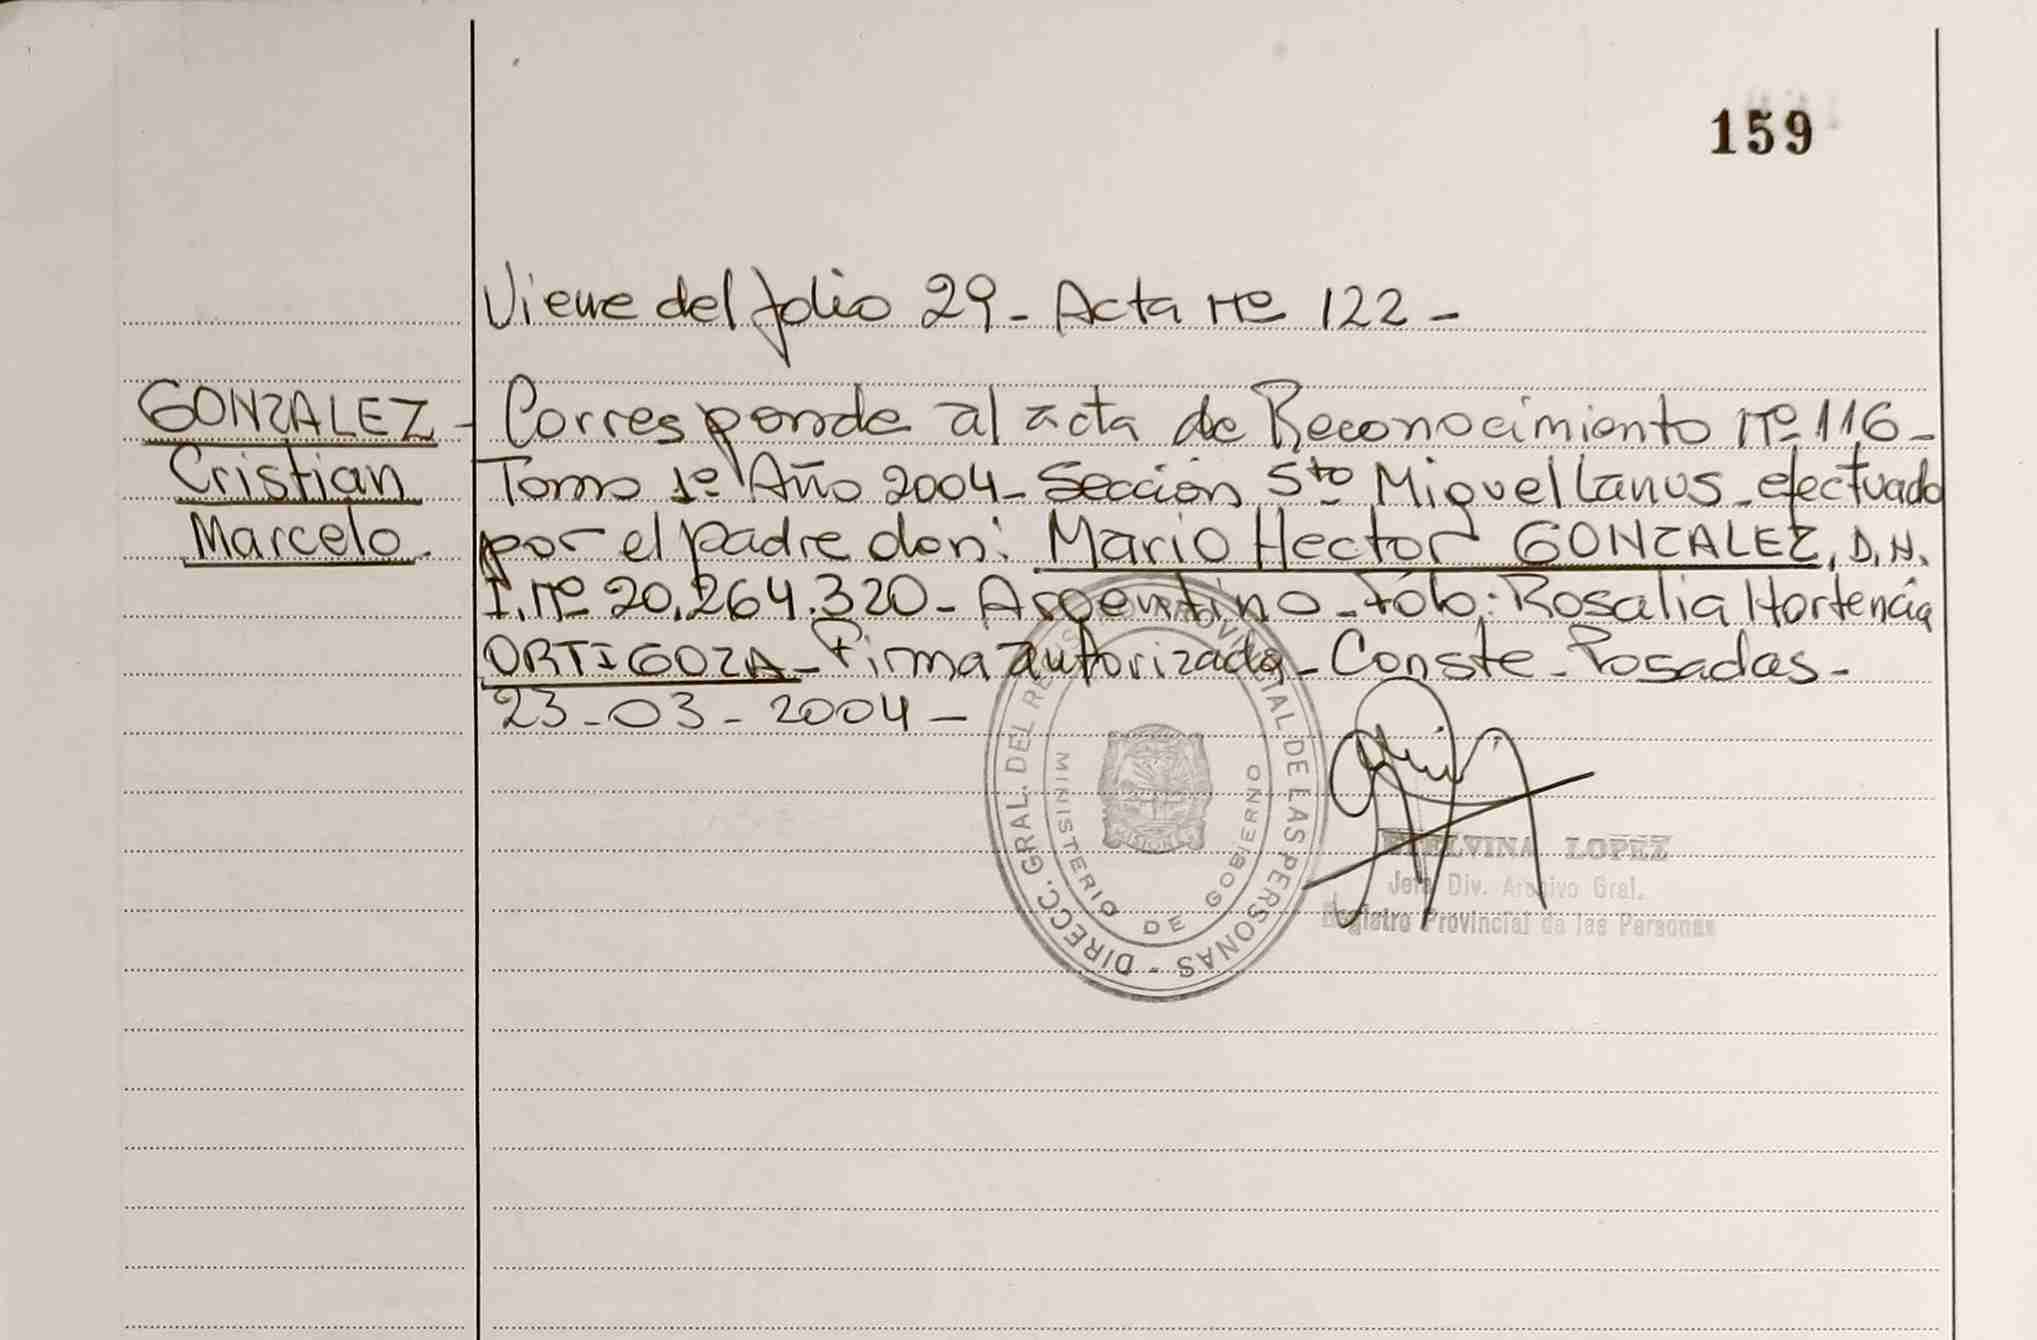 159
Viene del folio 29 - Acta Nº 122 -
GONZALEZ - Corresponde al acta de Reconocimiento Nº 116 -
Cristian Tomo 1º Año 2004 - Sección Sto Miguel Lanus - efectuado
Marcelo. por el padre don: Mario Hector GONZALEZ, D.N.
I. Nº 20.264.320 - Argentino - Fdo: Rosalia Hortencia
ORTIGOZA - Firma autorizada - Conste - Posadas -
23-03-2004 -
DIRECC. GRAL. DEL PROVINCIAL DE LAS PERSONAS -
MINISTERIO DE GOBIERNO
LOPEZ
Jefa Div. Archivo Gral.
Registro Provincial de las Personas